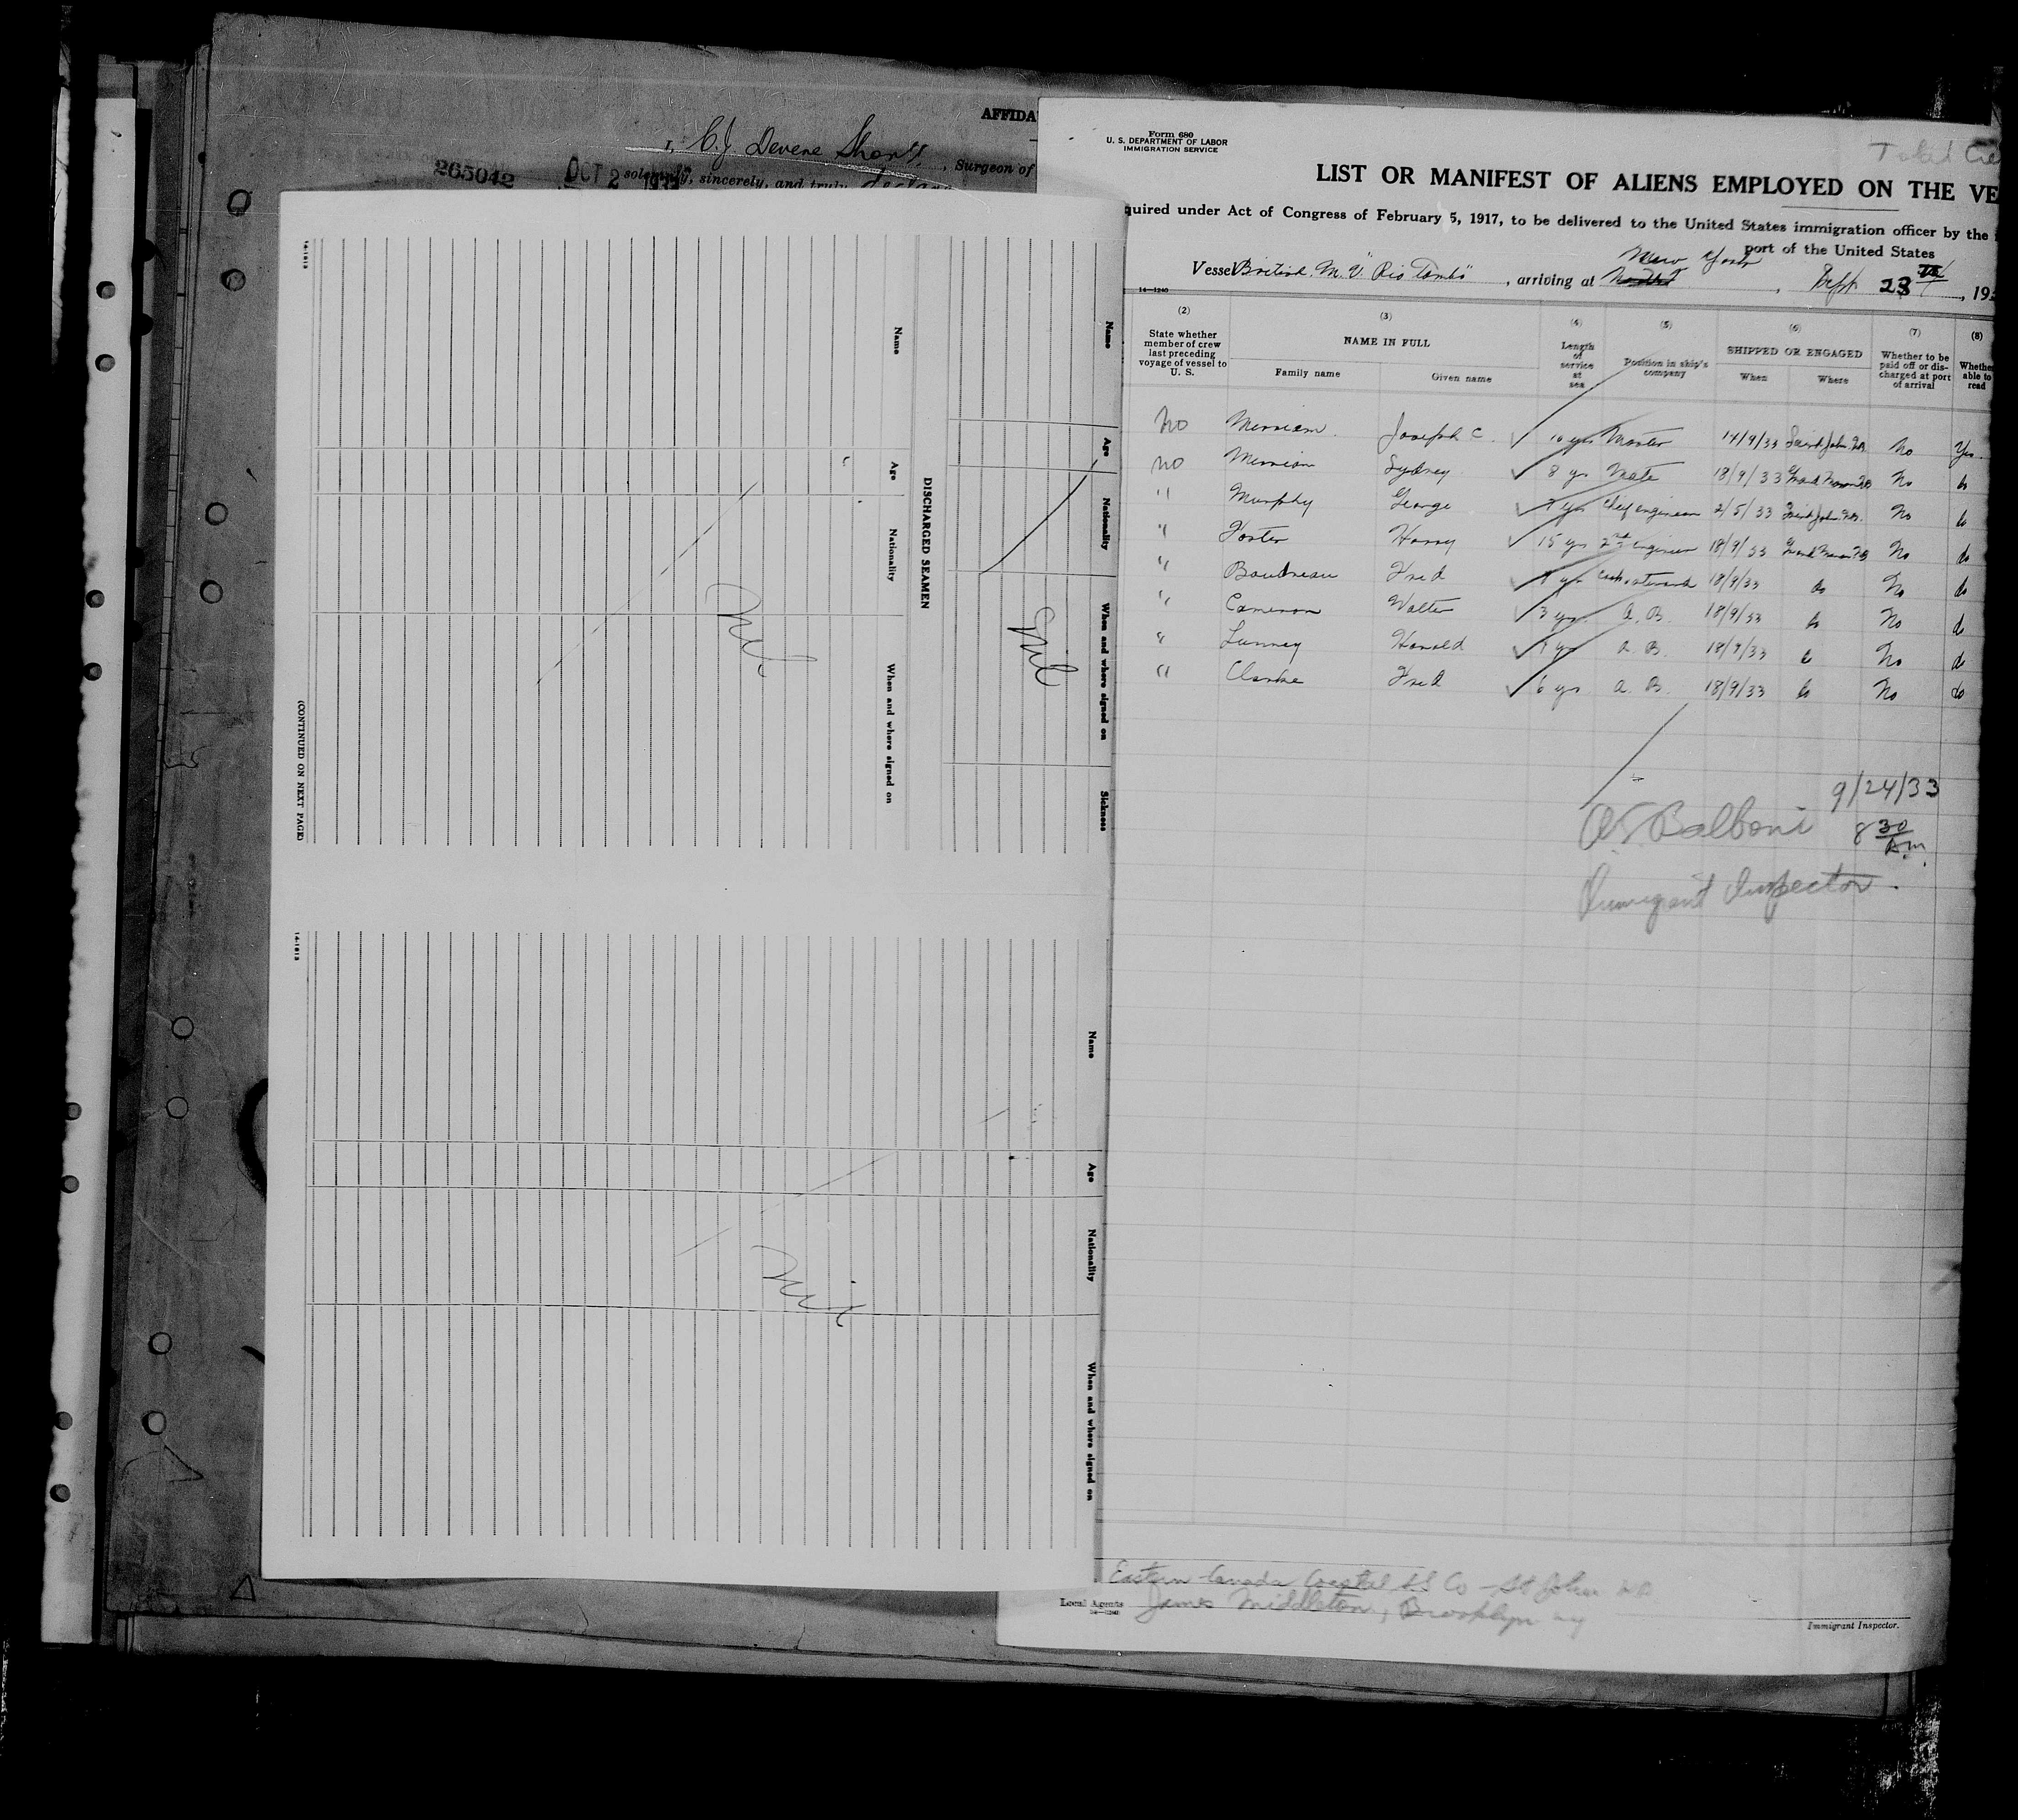 AFFIDA
I, C.J. Devene Short, Surgeon of
265042 OCT 2 solemnly, sincerely, and truly declare
Form 680
U. S. DEPARTMENT OF LABOR
IMMIGRATION SERVICE
LIST OR MANIFEST OF ALIENS EMPLOYED ON THE VE
quired under Act of Congress of February 5, 1917, to be delivered to the United States immigration officer by the
port of the United States
Vessel British M.V. "Rio Tambo", arriving at New York, Sept 23, 193
14—1240
(2) (3) (4) (5) (6) (7) (8)
State whether member of crew last preceding voyage of vessel to U. S. NAME IN FULL Length of service at sea Position in ship's company SHIPPED OR ENGAGED Whether to be paid off or discharged at port of arrival Whether able to read
Family name Given name When Where
No Merriam Joseph C. 10 yrs Master 14/9/33 Saint John N.B. No Yes
No Merriam Sydney 8 yrs Mate 18/9/33 No do
" Murphy George 7 yrs Chief engineer 2/5/33 Saint John N.B. No do
" Foster Harry 15 yrs 2nd engineer 18/9/33 No do
" Boudreau Fred yrs Cook-steward 18/9/33 do No do
" Cameron Walter 3 yrs A. B. 18/9/33 do No do
" Lunney Harold yrs A. B. 18/9/33 do No do
" Clarke Fred 6 yrs A. B. 18/9/33 do No do
9/24/33
Balboni 8 30 A.m.
Immigrant Inspector.
Eastern Canada Coastal SS Co - St John NB
Local Agents James Middleton, Brooklyn NY
Immigrant Inspector.
Name Age Nationality When and where signed on Sickness
Nil
DISCHARGED SEAMEN
Name Age Nationality When and where signed on
Nil
(CONTINUED ON NEXT PAGE)
14-1913
Name Age Nationality When and where signed on
Nil
14-1913